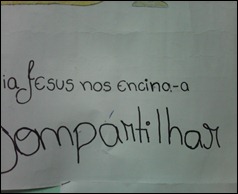 ia Jesus nos encino-a
Compártilhar